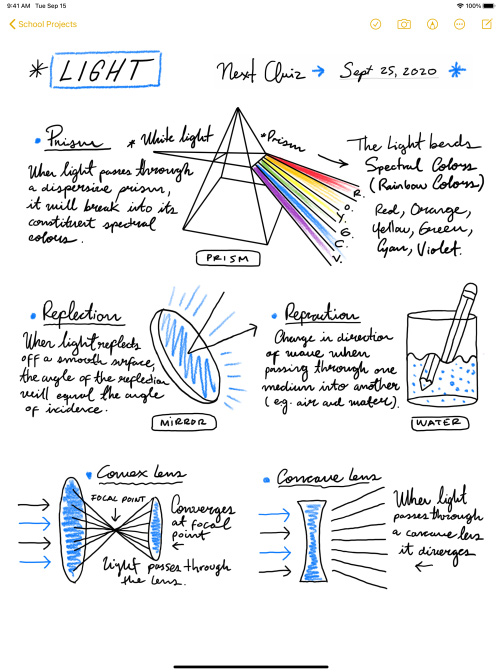 9:41 AM Tue Sep 15
100%
School Projects
* LIGHT
Next Quiz → Sept 25, 2020 *
• Prism
When light passes through
a dispersive prism,
it will break into its
constituent spectral
colors.
* White light
*Prism
R.
O.
Y.
G.
C.
V.
PRISM
The Light bends
Spectral Colors
(Rainbow Colors)
Red, Orange,
Yellow, Green,
Cyan, Violet.
• Reflection
When light reflects
off a smooth surface,
the angle of the reflection
will equal the angle
of incidence.
MIRROR
• Refraction
Change in direction
of wave when
passing through one
medium into another
(eg. air and water).
WATER
• Convex Lens
FOCAL POINT
Converges
at focal
point
←
Light passes through
the lens.
• Concave Lens
When light
passes through
a concave lens
it diverges
←